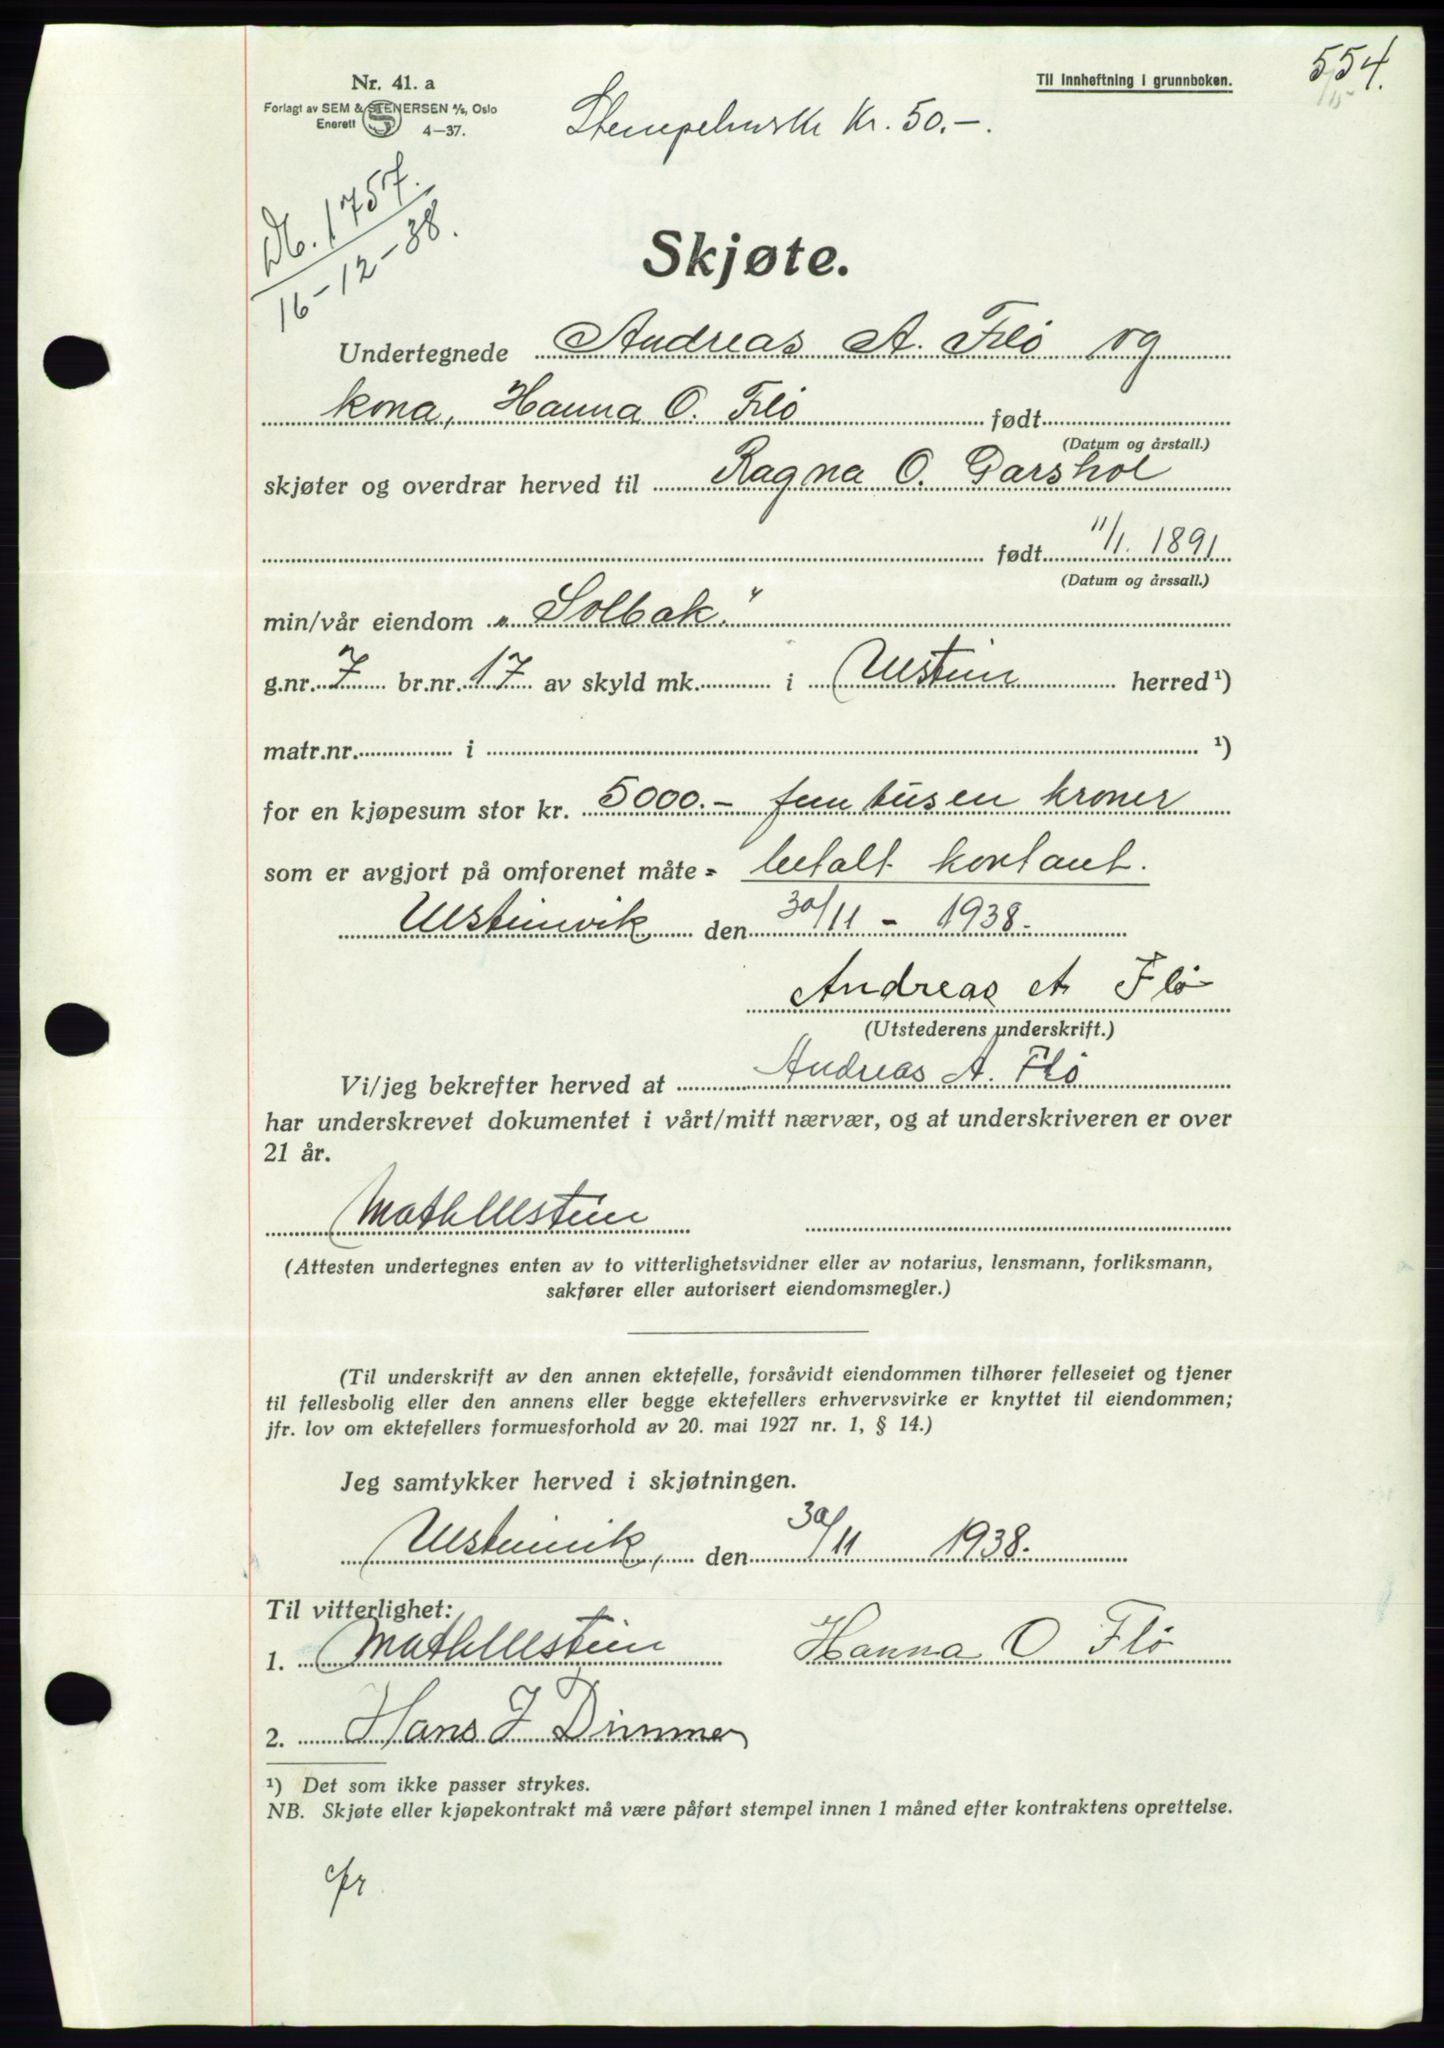 554.
Nr. 41. a
Til innheftning i grunnboken.
Forlagt av SEM & STENERSEN A/S, Oslo
Enerett 4—37.
Stempelmerke Kr. 50.-.
Db. 1757.
16-12-38.
Skjøte.
Undertegnede Andreas A. Flø og
kona, Hanna O. Flø født
(Datum og årstall.)
skjøter og overdrar herved til Ragna O. Garshol
født 11/1. 1891
(Datum og årssall.)
min/vår eiendom „Solbak"
g.nr. 7 br.nr. 17 av skyld mk. i Ulstein herred ¹)
matr.nr. i ¹)
for en kjøpesum stor kr. 5000.- fem tusen kroner
som er avgjort på omforenet måte = betalt kontant.
Ulsteinvik den 30/11 - 1938.
Andreas A Flø
(Utstederens underskrift.)
Vi/jeg bekrefter herved at Andreas A. Flø
har underskrevet dokumentet i vårt/mitt nærvær, og at underskriveren er over
21 år.
Math Ulstein
(Attesten undertegnes enten av to vitterlighetsvidner eller av notarius, lensmann, forliksmann,
sakfører eller autorisert eiendomsmegler.)
(Til underskrift av den annen ektefelle, forsåvidt eiendommen tilhører felleseiet og tjener
til fellesbolig eller den annens eller begge ektefellers erhvervsvirke er knyttet til eiendommen;
jfr. lov om ektefellers formuesforhold av 20. mai 1927 nr. 1, § 14.)
Jeg samtykker herved i skjøtningen.
Ulsteinvik, den 30/11 1938.
Til vitterlighet:
1. Math Ulstein Hanna O Flø
2. Hans J Dimmen
¹) Det som ikke passer strykes.
NB. Skjøte eller kjøpekontrakt må være påført stempel innen 1 måned efter kontraktens oprettelse.